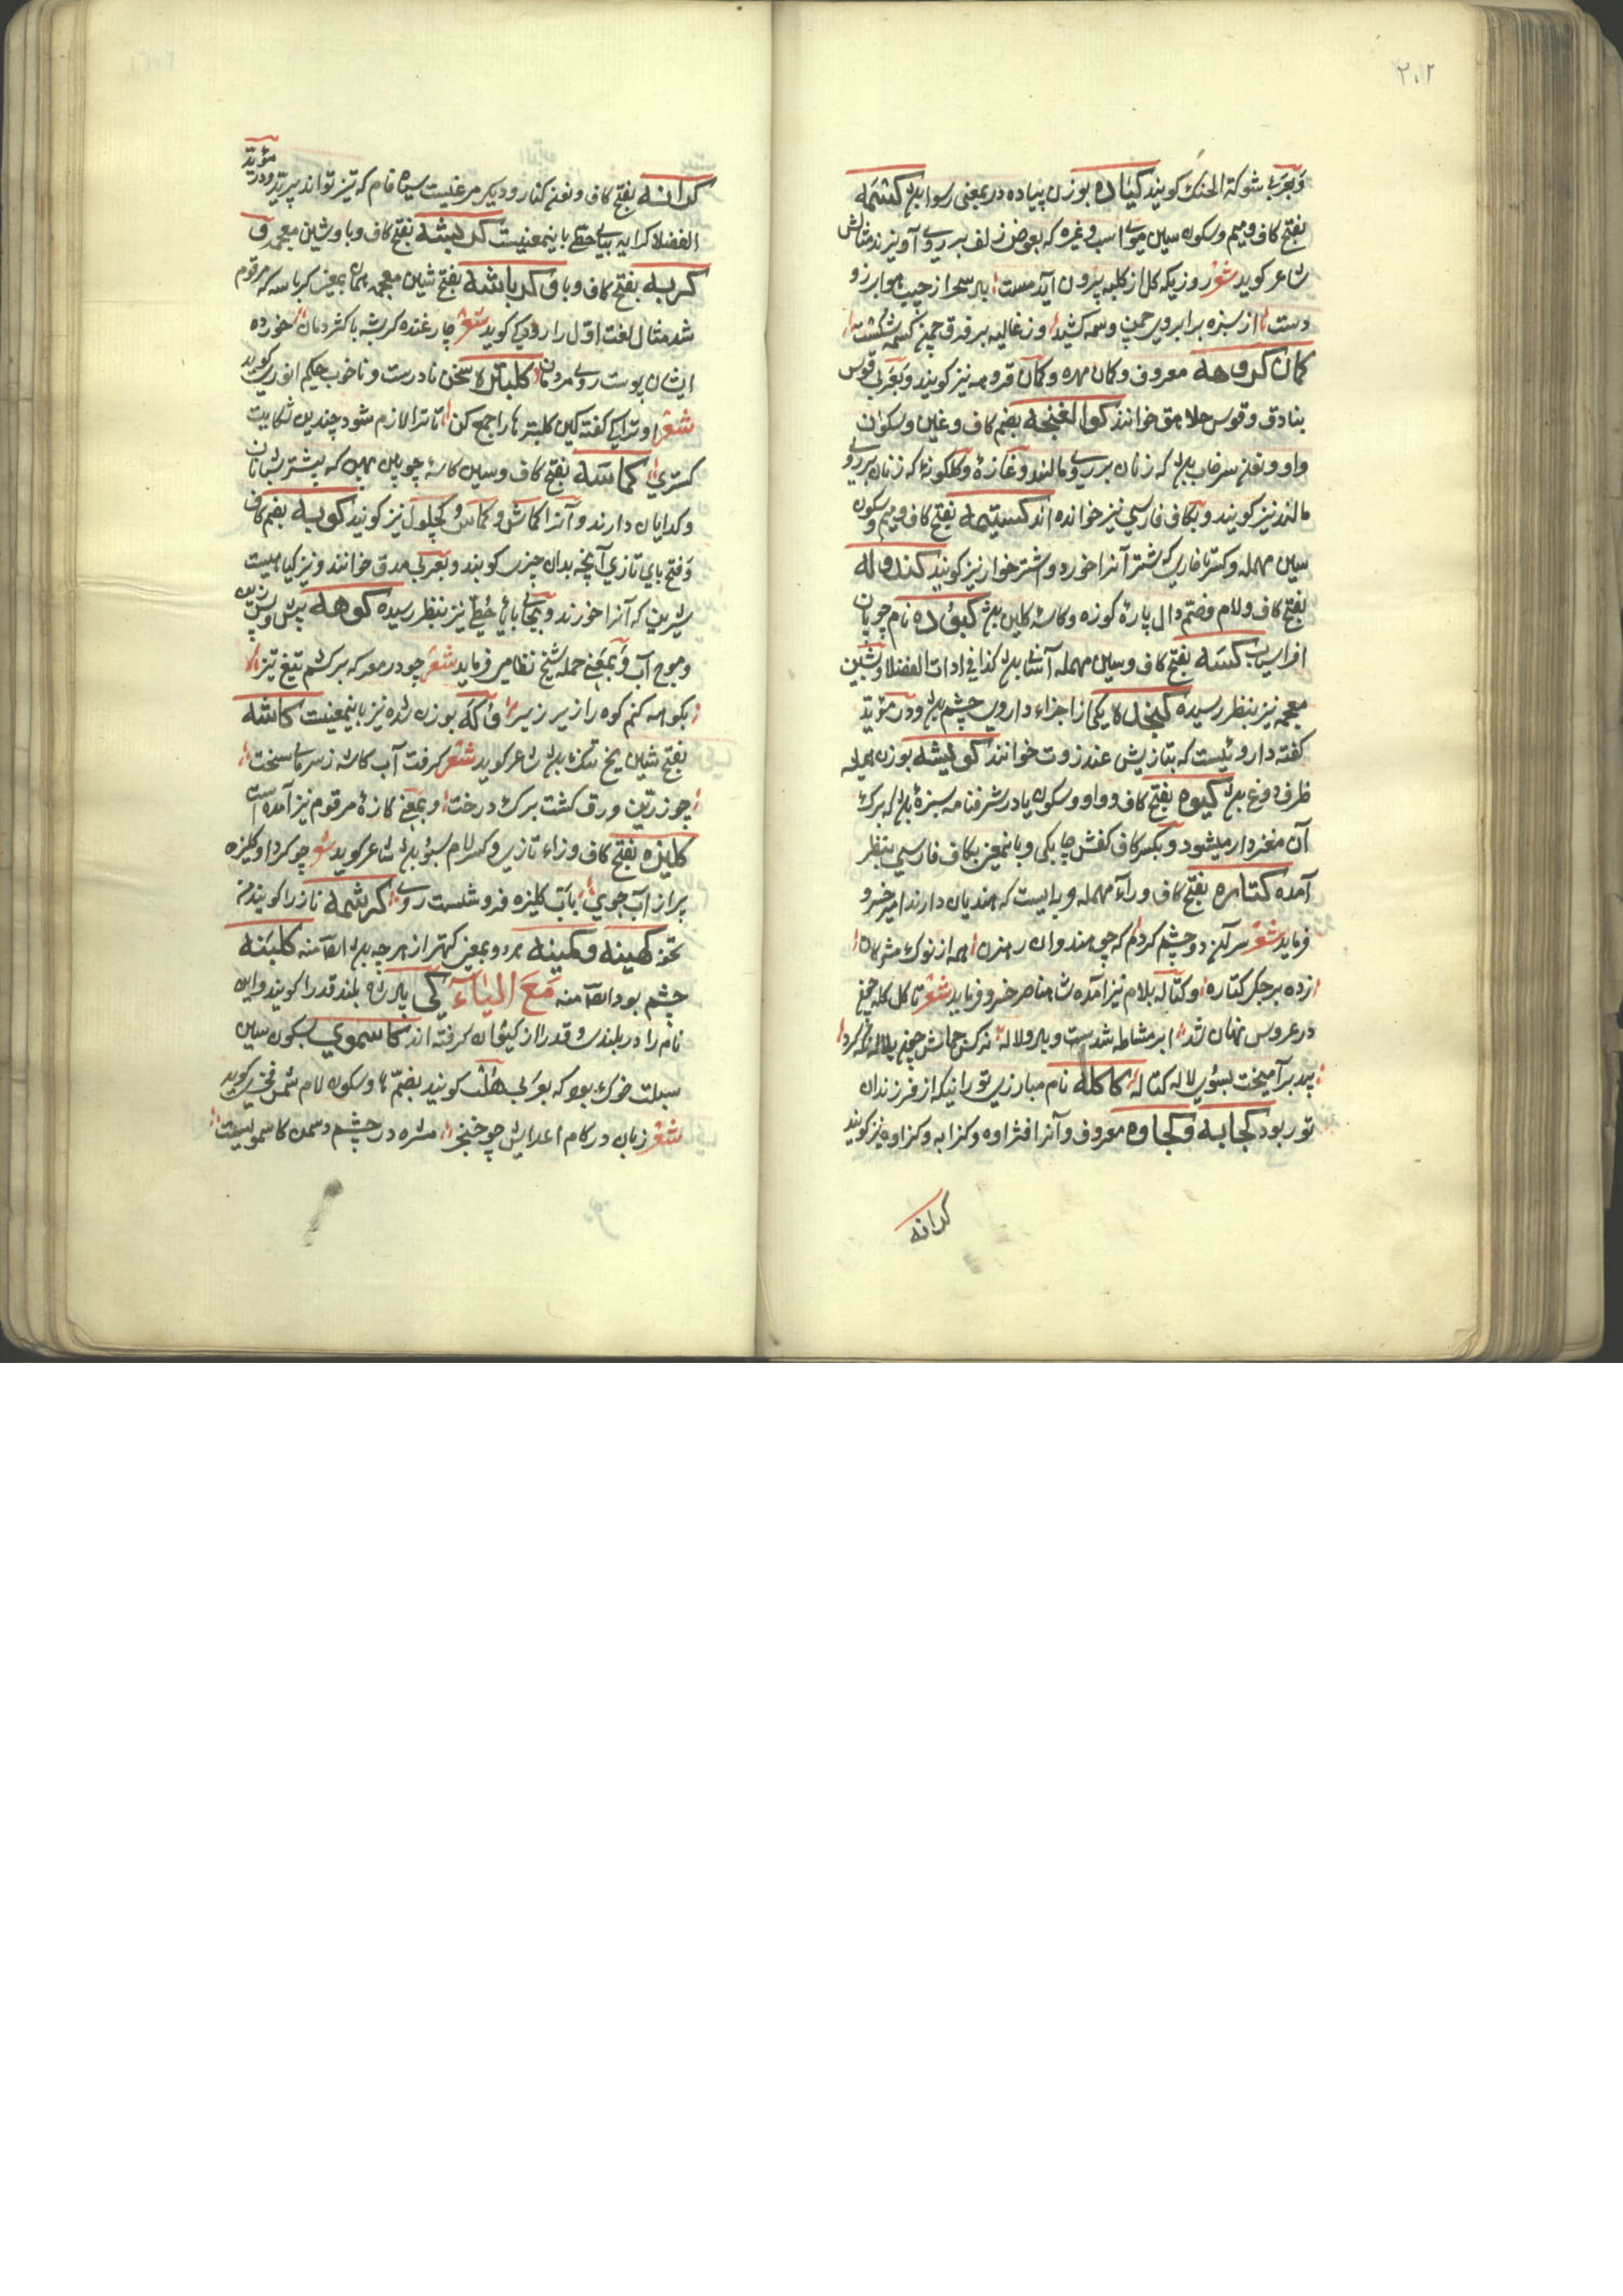 ٢٠٢
وبعربی شوکة الحنک کویند کیاده بوزن پیاده در بمعنی رسوا باشد کسمه
بفتح کاف ومیم وسکون سین موی اسب وغیره که بعوض زلف بر روی آویزند مثالش
شاعر کوید شعر روزیکه کل از کلبه برون آید مست باد سحر از جیب هوا برزو
دست از سبزه بر ابروی چمن وسمه کشید وز غالیه بر فرق چمن کسمه شکست
کمان کروهه معروف وکمان مهره وکمان قروهه نیز کویند وبعربی قوس
بنادق وقوس جلاهق خوانند کوالغنجه بضم کاف وغین وسکون
واو ونون سرخاب باشد که زنان بر روی مالند وغازه وکلکونه که زنان بر روی
مالند نیز کویند وبکاف فارسی نیز خوانده اند کستیمه بفتح کاف ومیم وسکون
سین مهمله وکسر تا خاریکه شتر آنرا خورد واشترخوار نیز کویند کندوله
بفتح کاف ولام وضم دال پارۀ کوزه وکاسۀ کلین باشد کبوده نام چوپان
افراسیاب کسه بفتح کاف وسین مهمله آشنای باشد کذا فی ادات الفضلا وبشین
معجمه نیز بنظر رسیده کیخده یکی از اجزاء داروی چشم باشد ودر مؤید
کفته داروئیست که بتازیش عنزروت خوانند کولیشه بوزن همیشه
ظرف دوغ باشد کیوه بفتح کاف وواو وسکون یا در شرفنامه سبزۀ باشد که برک
آن مغزدار میشود وبکسر کاف کفش چابکی وباینمعنی بکاف فارسی بنظر
آمده کتاره بفتح کاف وراء مهمله حربه ایست که هندیان دارند امیر خسرو
فرماید شعر سر آن دو چشم کردم که چو هندوان رهزن همه از نوک مژگان
زده بر جکر کتاره وکتاله بلام نیز آمده شاه ناصر خسرو فرماید شعر تا کل کله چمن
در عروس نهان شد ابر مشاطه شدست وباد ولاله نرکس جماش چون بلاله نظر کرد
بید بر آمیخت بسوی لاله کتاله کاکله نام مبارزی تورانیکه از فرزندان
تور بود کجابه وکجاوه معروف وآنرا افثراوه وکزابه وکزاوه نیز کویند
کرانه
کرانه بفتح کاف ونون کنار ودیکر مرغیست سیاه فام که تیز تواند پرید ودر مؤید
الفضلا کرایه بیای حطی باینمعنیست کربشه بفتح کاف وبا وشین معجمه و
کربه بفتح کاف وبا وکرباشه بفتح شین معجمه همان بمعنی کرباسه که مرقوم
شد مثال لغت اول را رودکی کوید شعر چارغنده کربشه با کژدمان خورده
ایشان پوست روی مردمان کلبتره سخن نادرست وناخوب حکیم انوری کوید
شعر او ترا کی کفته کین کلبترها را جمع کن تا ترا لازم شود چندین شکایت
کستری کماسه بفتح کاف وسین کاسۀ چوبین پهن که بیشتر شبانان
وکدایان دارند وآنرا کماش وکماس وکچلول نیز کویند کوبه بضم کاف
وفتح بای تازی آنچه بدان چیزی کوبند وبعربی مدق خوانند ونیز کیاهیست
شیرین که آنرا خورند وبجای با یای حطی نیز بنظر رسیده کوهه پیش وپس زین
وموج آب وبمعنی حمله شیخ نظامی فرماید شعر چو در معرکه برکشم تیغ تیز
بکوهه کنم کوه را ریز ریز وکه بوزن شده نیز باینمعنیست کاشه
بفتح شین یخ تنک باشد شاعر کوید شعر کرفت آب کاشه ز سرمای سخت
چو زرین ورق کشت برک درخت وبمعنی کازۀ مرقوم نیز آمده است
کلیزه بفتح کاف وزاء تازی وکسر لام سبو باشد شاعر کوید شعر چو کرد او کلیزه
پر از آب جوی بآب کلیزه فرو شست روی کرشمه ناز را کویند من
تحفه کهینه وکمینه هر دو بمعنی کهتر از هر چه باشد ایضا منه کلبنه
چشم بود ایضا منه مع الیاء کی پادشاه بلندقدر را کویند واین
نام را در بلندی وقدر از کیوان کرفته اند کاسموی بسکون سین
سبلت خوک بود که بعربی هلب کویند بضم ها وسکون لام شمس فخری کوید
شعر زبان در کام اعدایش چو خنجر مژه در چشم دشمن کاسمویست